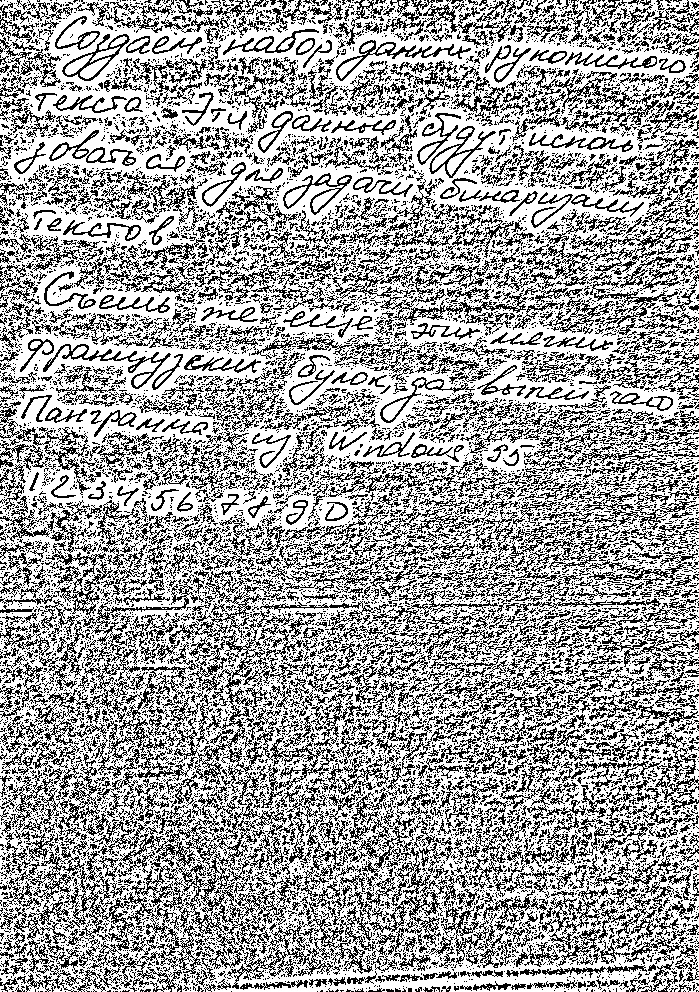 Создаем набор данных рукописного
текста. Эти данные будут исполь-
зоваться для задачи бинаризации
текстов.
Съешь же ещё этих мягких
французских булок, да выпей чаю
Панграмма из Windows 95
1 2 3 4 5 6 7 8 9 0